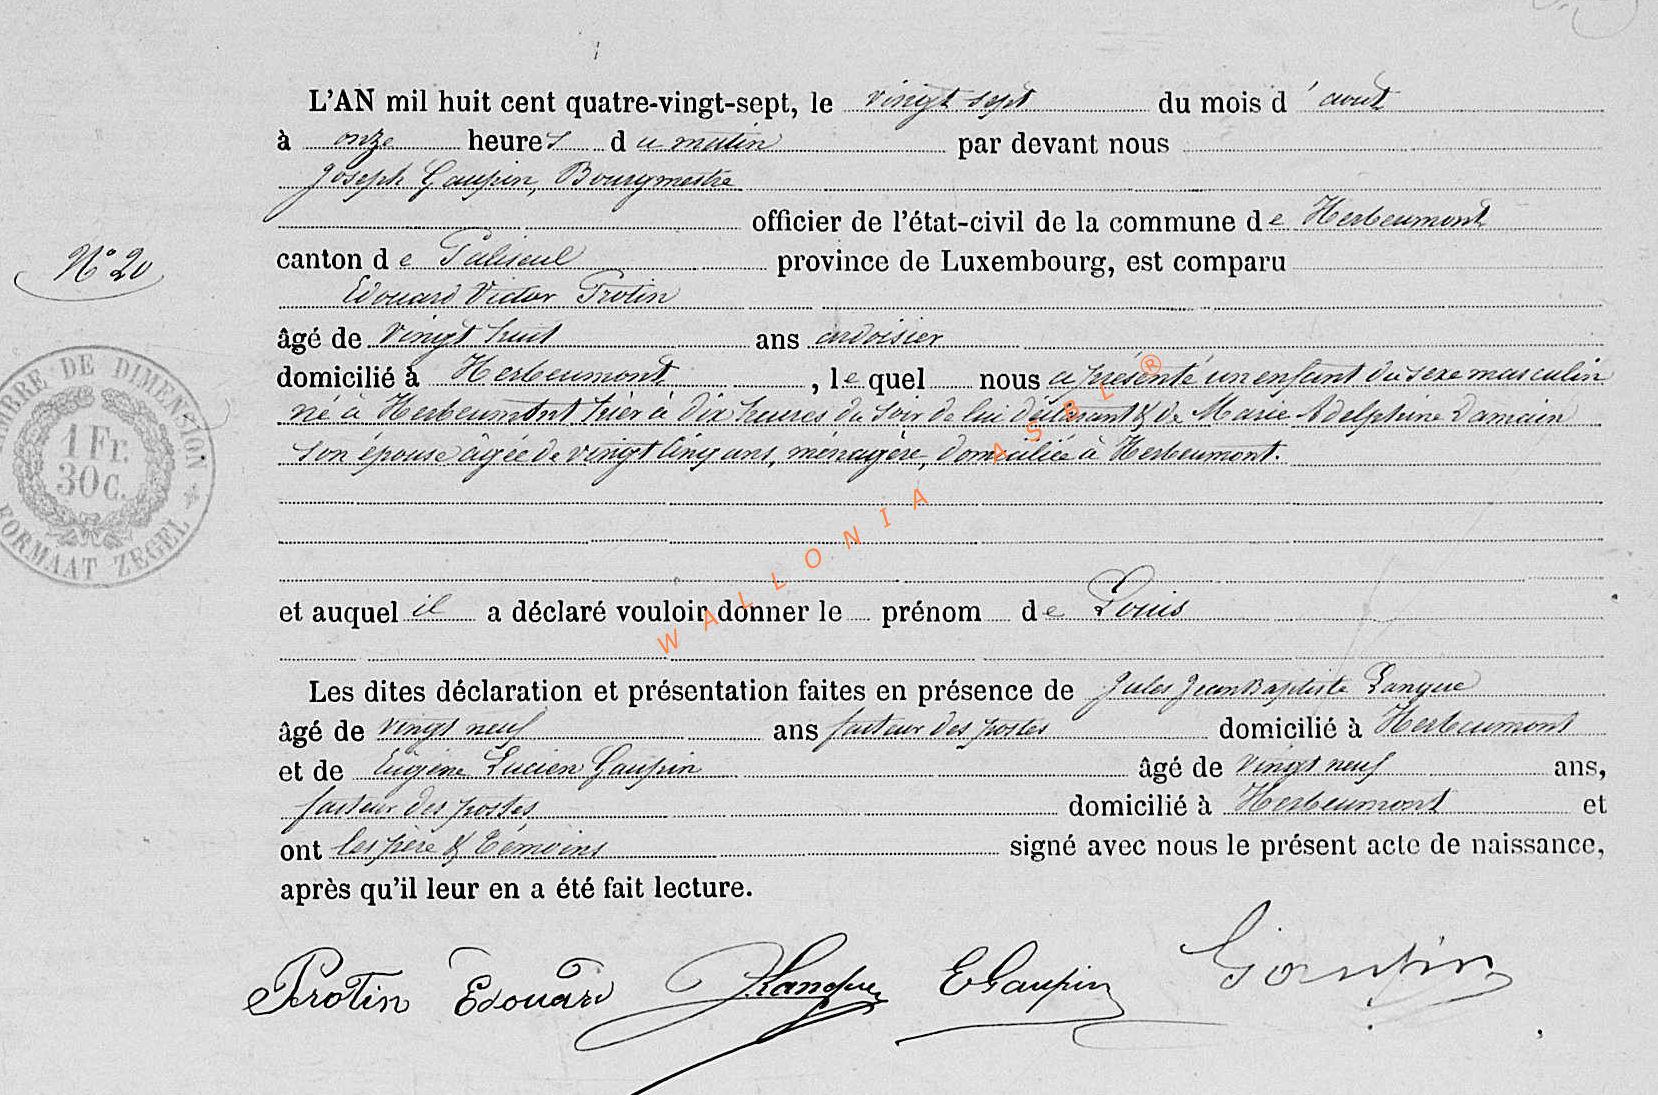 L'AN mil huit cent quatre-vingt-sept, le vingt sept du mois d'août
à onze heures du matin par devant nous
Joseph Gaupin, Bourgmestre
officier de l'état-civil de la commune de Herbeumont
N° 20
canton de Paliseul province de Luxembourg, est comparu
Edouard Victor Protin
âgé de vingt huit ans ardoisier
domicilié à Herbeumont, lequel nous a présenté un enfant du sexe masculin
né à Herbeumont hier à dix heures du soir de lui déclarant & de Marie Adelphine Damain
son épouse âgée de vingt cinq ans, ménagère, domiciliée à Herbeumont.
TIMBRE DE DIMENSION
1 Fr.
30 C.
FORMAAT ZEGEL
et auquel il a déclaré vouloir donner le prénom de Louis
Les dites déclaration et présentation faites en présence de Jules Jean Baptiste Langue
âgé de vingt neuf ans facteur des postes domicilié à Herbeumont
et de Eugène Lucien Gaupin âgé de vingt neuf ans,
facteur des postes domicilié à Herbeumont et
ont les père & témoins signé avec nous le présent acte de naissance,
après qu'il leur en a été fait lecture.
Protin Edouard JLangue EGaupin Gaupin
WALLONIA ASBL ®